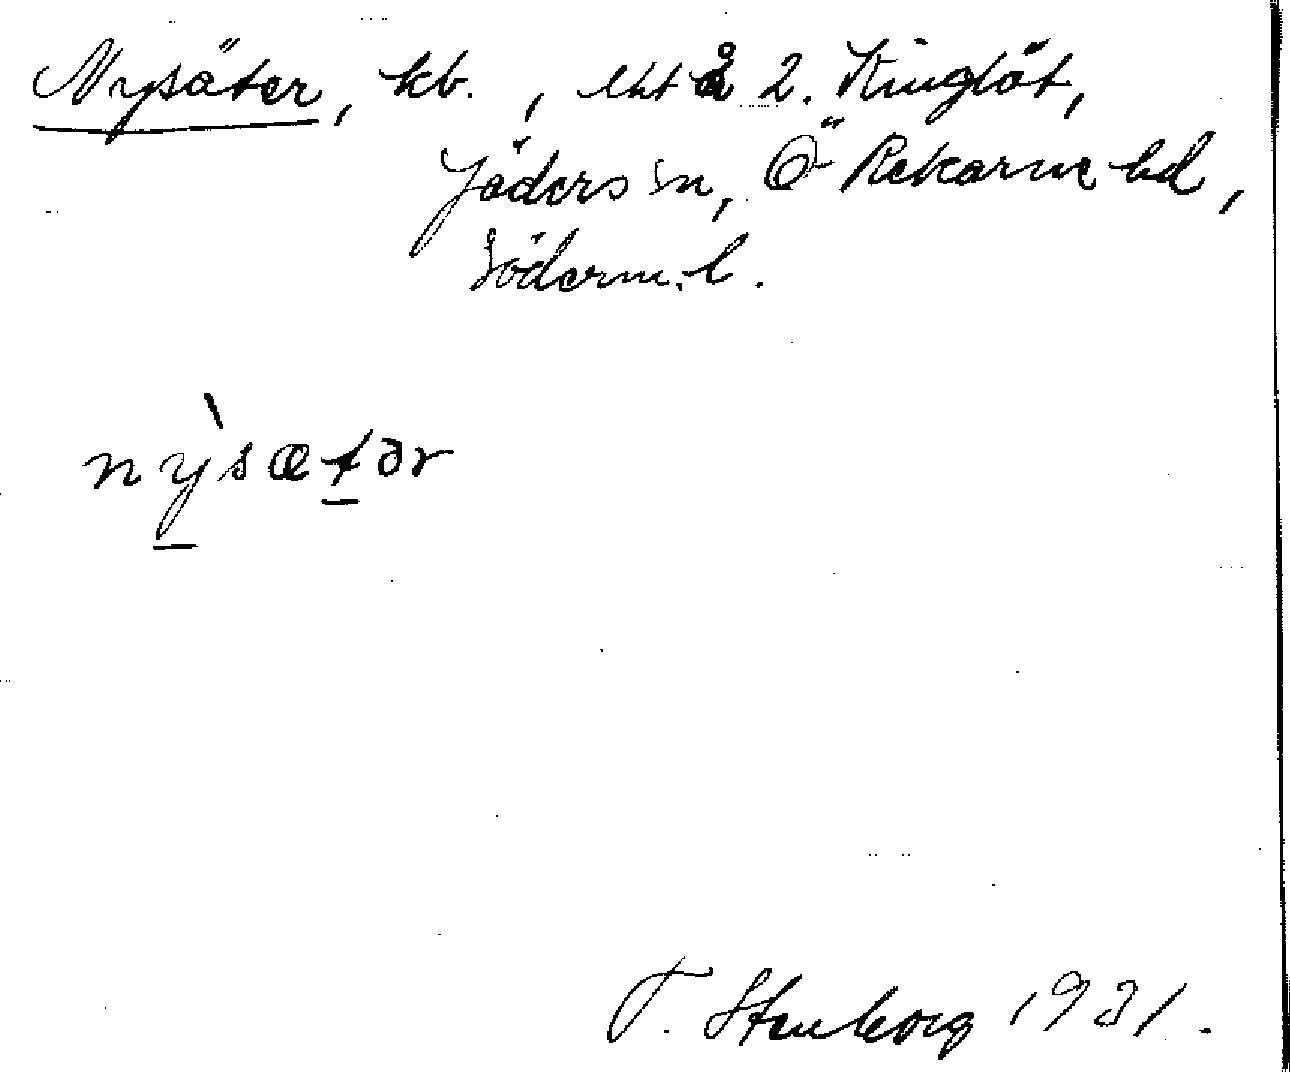 Nysäter, kb. , eht å 2. Kinglöt,
Jäders sn, Ö Rekarne hd,
Söderm. l.
nỳsætər
T. Stenborg 1931.